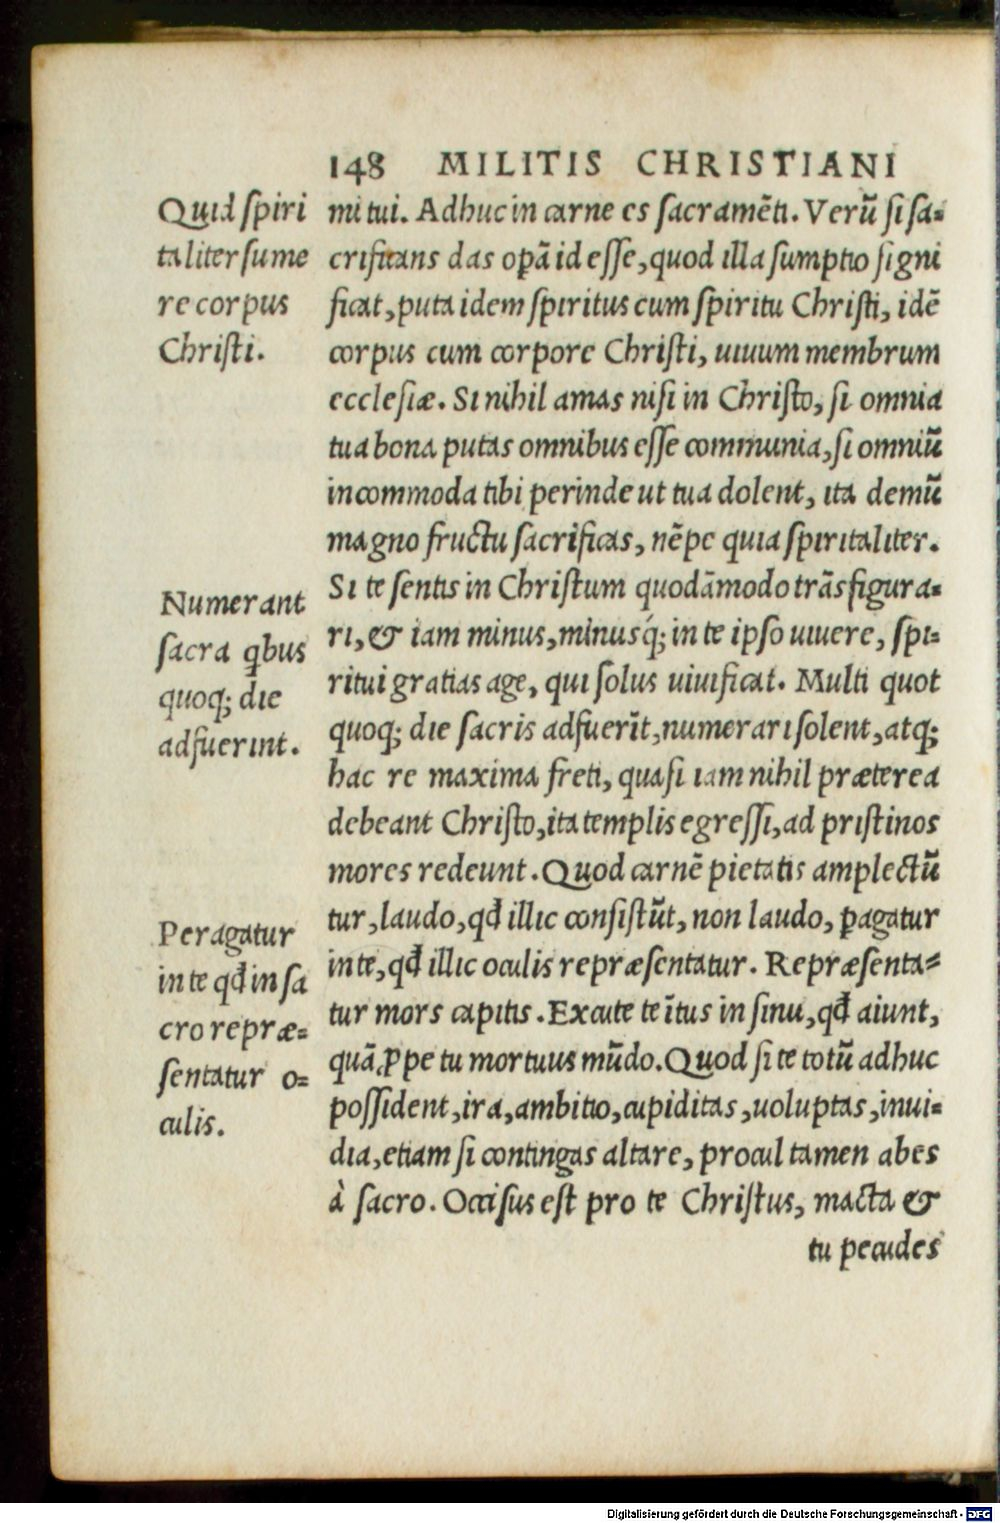 148 MILITIS CHRISTIANI
Quid ſpiri
taliter ſume
re corpus
Chriſti.
mi tui. Adhuc in carne es ſacramẽti. Verũ ſi ſa-
crificans das opã id eſſe, quod illa ſumptio ſigni
ficat, puta idem ſpiritus cum ſpiritu Chriſti, idẽ
corpus cum corpore Chriſti, uiuum membrum
eccleſiæ. Si nihil amas niſi in Chriſto, ſi omnia
tua bona putas omnibus eſſe communia, ſi omniũ
incommoda tibi perinde ut tua dolent, ita demũ
magno fructu ſacrificas, nẽpe quia ſpiritaliter.
Si te ſentis in Chriſtum quodãmodo trãsfigura-
ri, & iam minus, minusq́; in te ipſo uiuere, ſpi-
ritui gratias age, qui ſolus uiuificat. Multi quot
quoq; die ſacris adfuerĩt, numerari ſolent, atq;
hac re maxima freti, quaſi iam nihil præterea
debeant Chriſto, ita templis egreſſi, ad priſtinos
mores redeunt. Quod carnẽ pietatis amplectũ
tur, laudo, qđ illic conſiſtũt, non laudo, ꝑagatur
in te, qđ illic oculis repræſentatur. Repræſenta-
tur mors capitis. Excute te ĩtus in ſinu, qđ aiunt,
quã ꝓpe tu mortuus mũdo. Quod ſi te totũ adhuc
poſſident, ira, ambitio, cupiditas, uoluptas, inui-
dia, etiam ſi contingas altare, procul tamen abes
à ſacro. Occiſus eſt pro te Chriſtus, macta &
tu pecudes
Numerant
ſacra qbus
quoq; die
adfuerint.
Peragatur
in te qđ in ſa
cro repræ-
ſentatur o-
culis.
Digitalisierung gefördert durch die Deutsche Forschungsgemeinschaft - DFG